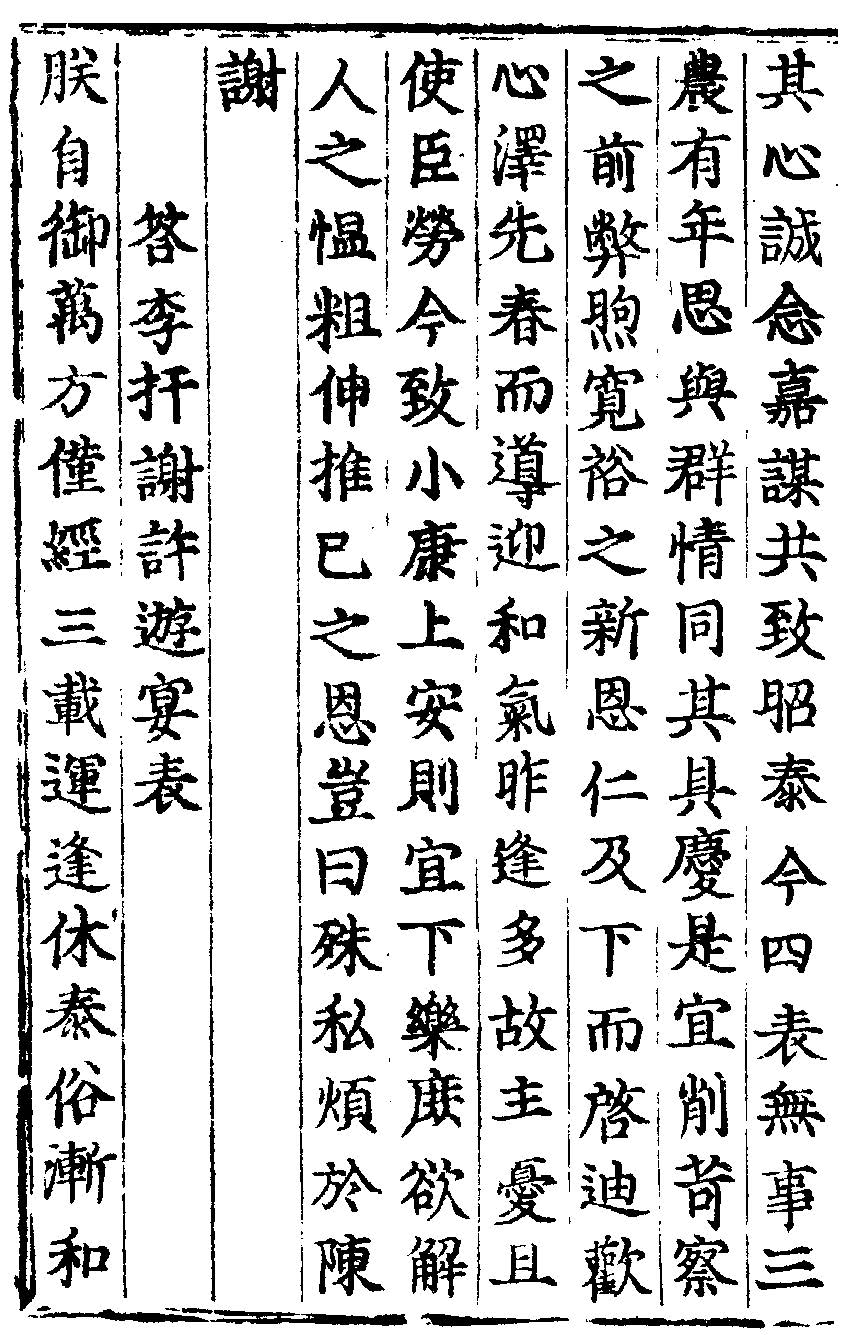 其心誠念嘉謀共致昭泰今四表無事三
農有年思與群情同其具慶是宜削苛察
之前弊煦寬裕之新恩仁及下而啓迪歡
心澤先春而導迎和氣昨逢多故主憂且
使臣勞今致小康上安則宜下樂庶欲解
人之愠粗伸推已之恩豈曰殊私煩於陳
謝
答李扞謝許遊宴表
朕自御萬方僅經三載運逢休泰俗漸和